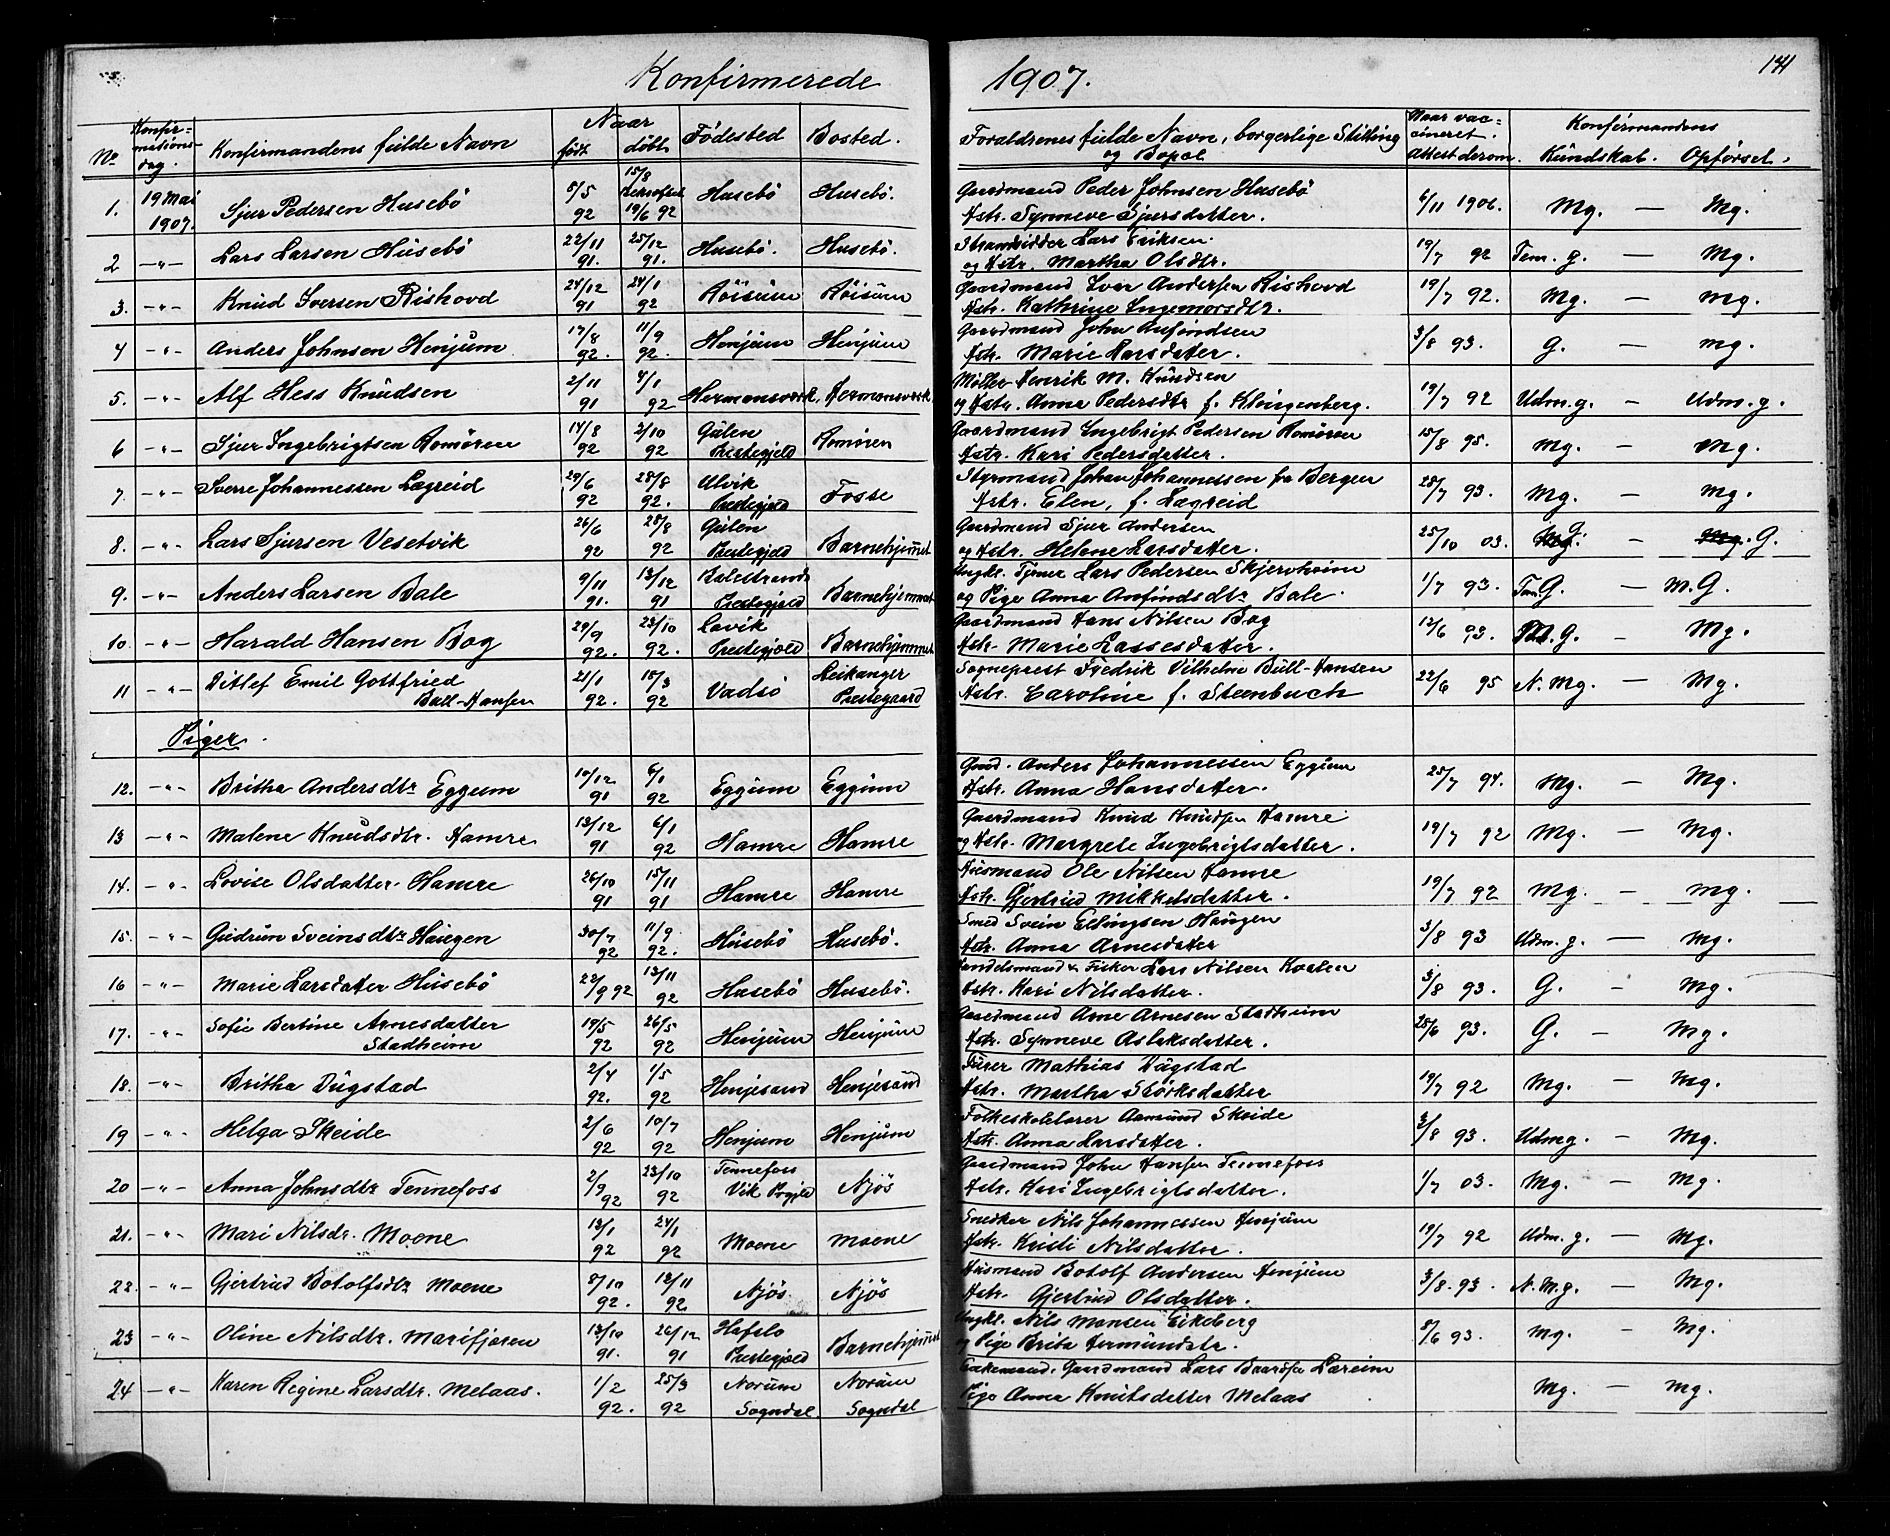 Konfirmerede 1907. 141
No Konfirmationsdag. Konfirmandens fulde Navn Naar født døbt Fødested Bosted. Forældrenes fulde Navn, borgerlige Stilling og Bopæl Naar vaccineret. Attest derom. Konfirmandens Kundskab. Opførsel.
1. 19 Mai 1907. Sjur Pedersen Husebö 5/5 92 15/8 19/6 92 Husebö Husebö. Gaardmand Peder Johnsen Husebö Hstr. Synneve Sjursdatter. 6/11 1906. Mg. — Mg.
2 —"— Lars Larsen Husebö 22/11 91. 25/12 91. Husebö. Husebö. Strandsidder Lars Eriksen. og Hstr. Martha Olsdtr. 19/7 92 Tem. g. — Mg.
3. —"— Knud Iversen Rishovd 24/12 91 24/1 92 Röisum Röisum Gaardmand Iver Andersen Rishovd Hstr. Kathrine Ingemorsdtr. 19/7 92. Mg. — Mg.
4 —"— Anders Johnsen Henjum 17/8 92. 11/9 92. Henjum Henjum Gaardmand John Anfindsen Hstr. Marie Larsdatter. 3/8 93. G. — Mg.
5. —"— Alf Hess Knudsen 2/11 91 4/1 92 Hermansverk. Hermansverk Møller Henrik M. Knudsen og Hstr. Anna Pedersdtr f. Klingenberg. 19/7 92 Udm. g. — Udm. g.
6 —"— Sjur Ingebrigtsen Romören 14/8 92 2/10 92 Gulen Prestegjeld Romören Gaardmand Ingebrigt Pedersen Romören Hstr. Kari Pedersdatter. 15/8 95. Mg. — Mg.
7. —"— Sverre Johannessen Lægreid 29/6 92 28/8 92. Ulvik Prestegjeld Fosse Styrmand Johan Johannessen fra Bergen Hstr. Elen, f. Lægreid 28/7 93. Mg. — Mg.
8. —"— Lars Sjursen Vesetvik 26/6 92 28/8 92 Gulen Prestegjeld Barnehjemmet Gaardmand Sjur Andersen og Hstr. Helene Larsdatter. 25/10 03. G. — G.
9. —"— Anders Larsen Bale 9/11 91. 13/12 91 Balestrands Prestegjeld Barnehjemmet Ungkl. Tjener Lars Pedersen Skjerveheim og Pige Anna Anfindsdtr Bale. 1/7 93. Tem G. — M. G.
10. —"— Harald Hansen Bog 29/9 92. 23/10 92. Lavik Prestegjeld Barnehjemmet Gaardmand Hans Nilsen Bog Hstr. Marie Lassesdatter. 12/6 93. G. — Mg.
11 —"— Ditlef Emil Gottfried Bull-Hansen 21/1 92. 18/3 92 Vadsö Leikanger Prestegaard Sogneprest Fredrik Vilhelm Bull-Hansen Hstr. Caroline f. Steenbuch 22/6 95 N. Mg. — Mg.
Piger.
12. —"— Britha Andersdtr Eggum 10/12 91 6/1 92 Eggum Eggum Gmd. Anders Johannessen Eggum Hstr. Anna Hansdatter. 25/7 94. Mg. — Mg.
13 —"— Malene Knudsdtr. Hamre 13/12 91 6/1 92 Hamre Hamre Gaardmand Knud Knudsen Hamre og Hstr. Margrete Ingebrigtsdatter. 19/7 92 Mg. — Mg.
14. —"— Lovise Olsdatter Hamre 26/10 91 15/11 91 Hamre Hamre Husmand Ole Nilsen Hamre Hstr. Gjertrud Mikkelsdatter. 19/7 92 Mg. — Mg.
15. —"— Gudrun Sveinsdtr Haugen 30/7 92 11/9 92. Husebö Husebö. Smed Svein Ellingsen Haugen Hstr. Anna Arnesdatter 3/8 93 Udm. g. — Mg.
16 —"— Marie Larsdatter Husebö 22/9 92 13/11 92 Husebö Husebö. Handelsmand & Fisker Lars Nilsen Kvalen Hstr. Kari Nilsdatter. 3/8 93. G. — Mg.
17. —"— Sofie Bertine Arnesdatter Stadheim 19/5 92 26/5 92 Henjum Henjum Gaardmand Arne Arnesen Stadheim Hstr. Synneve Aslaksdatter. 28/6 93. G. — Mg.
18. —"— Britha Dugstad 2/4 92. 1/5 92 Henjesand Henjesand Fører Mathias Dugstad Hstr. Martha Størksdatter 19/7 92 Mg. — Mg.
19 —"— Helga Skeide 2/6 92 10/7 92 Henjum Henjum Folkeskolelærer Aamund Skeide Hstr. Anna Larsdatter. 3/8 93. Udmg. — Mg.
20 —"— Anna Johnsdtr Tennefoss 2/9 92 23/10 92 Tennefoss Vik Prgjld Njös Gaardmand John Hansen Tennefoss Hstr. Kari Ingebrigtsdatter. 1/7 03. Mg. — Mg.
21. —"— Mari Nilsdr. Moene 13/1 92 24/1 92 Moene Moene Snedker Nils Johannessen Henjum Hstr. Kristi Nilsdatter. 19/7 92 Udm. g. — Mg.
22. —"— Gjertrud Botolfsdtr Moene 8/10 92. 13/11 92 Njös. Njös Husmand Botolf Andersen Henjum Hstr. Gjertrud Olsdatter. 3/8. 93. N. Mg. — Mg.
23 —"— Oline Nilsdtr. Marifjæren 13/10 91. 26/12 91 Hafslo Prestegjeld Barnehjemmet Ungkl. Nils Monsen Eikeberg og Pige Brita Hermundsdtr. 8/6 93. Mg. — Mg.
24 —"— Karen Regine Larsdtr. Melaas. 1/2 92. 25/3 92 Norum Sogndal. Norum Sogndal Enkemand. Gaardmand Lars Baardsen Læreim Pige Anna Knutsdatter Melaas Mg. — Mg.